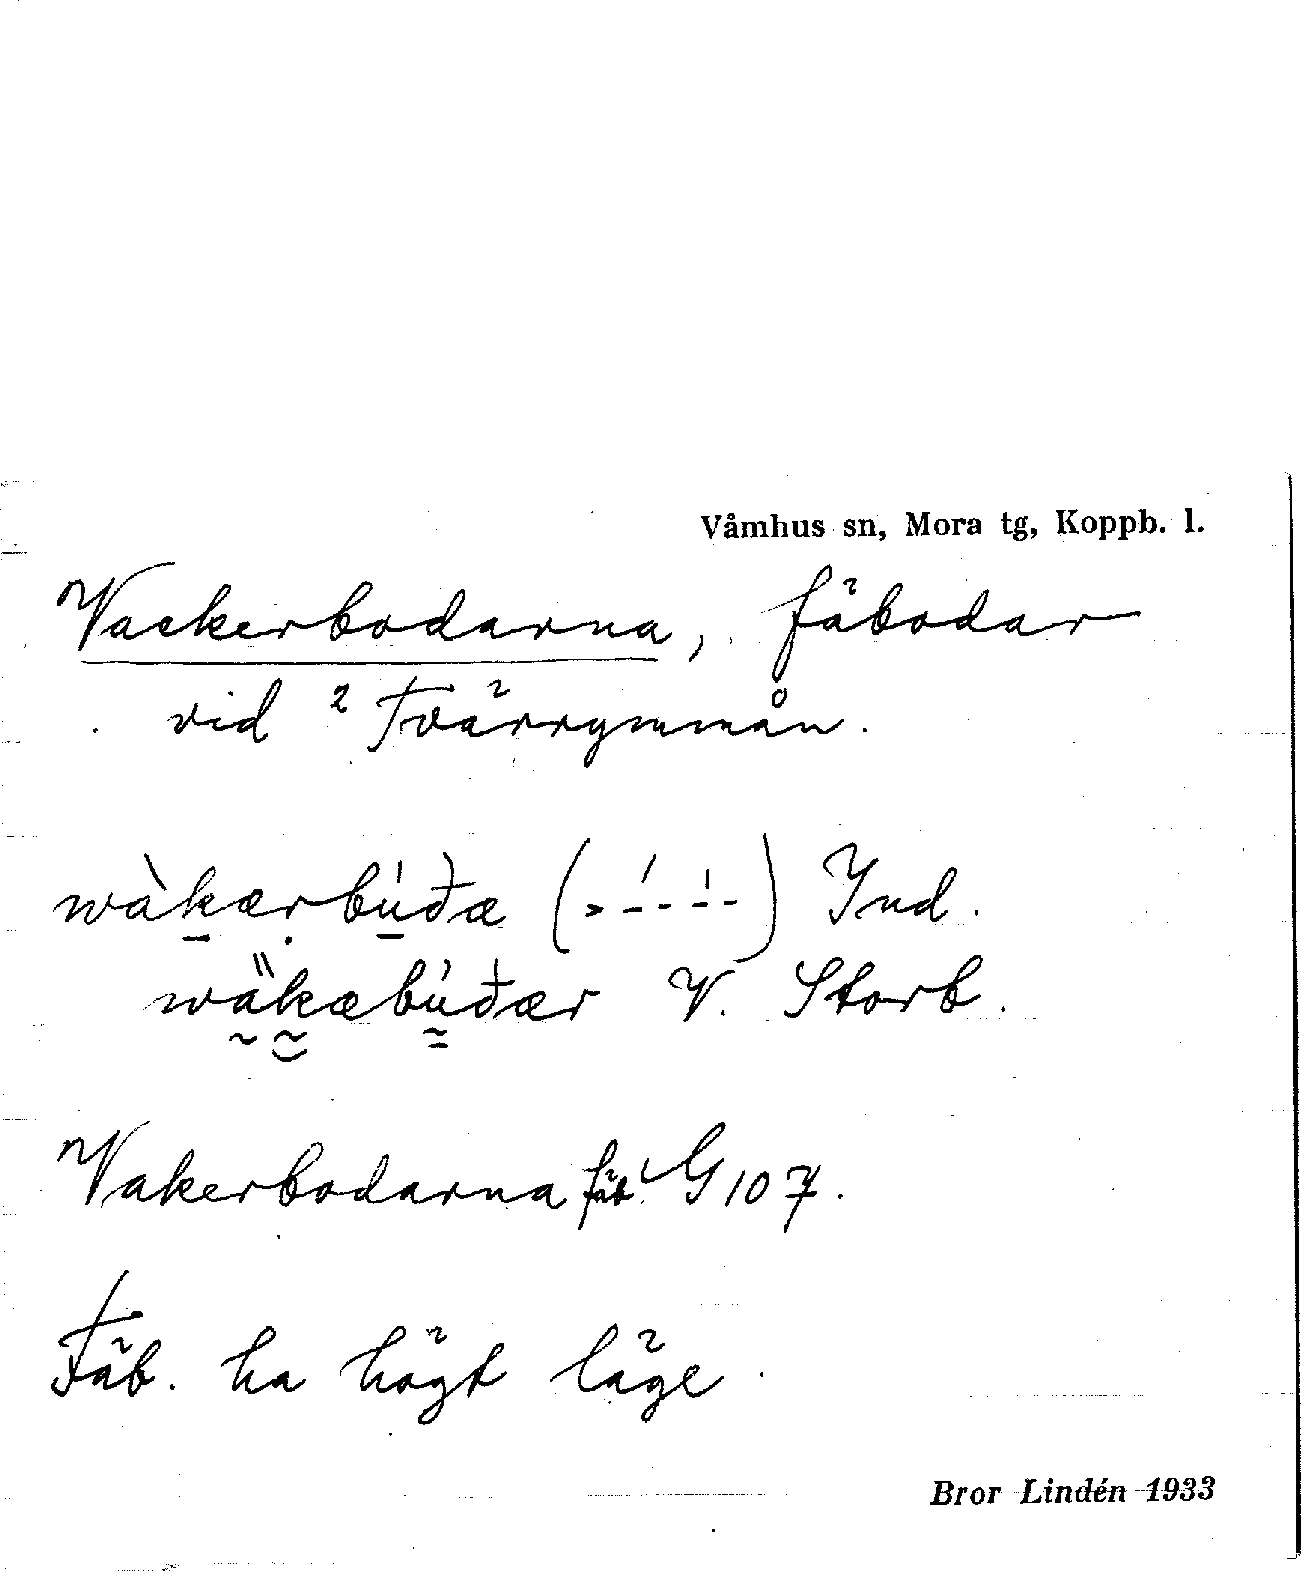 Våmhus sn, Mora tg, Koppb. l.
Vackerbodarna, fäbodar
vid ² Tvärrymmån.
wàkærbúðæ ( ) Ind.
wäkæbúðær V. Storb.
Vakerbodarna fäb. G 107.
Fäb. ha högt läge.
Bror Lindén 1933